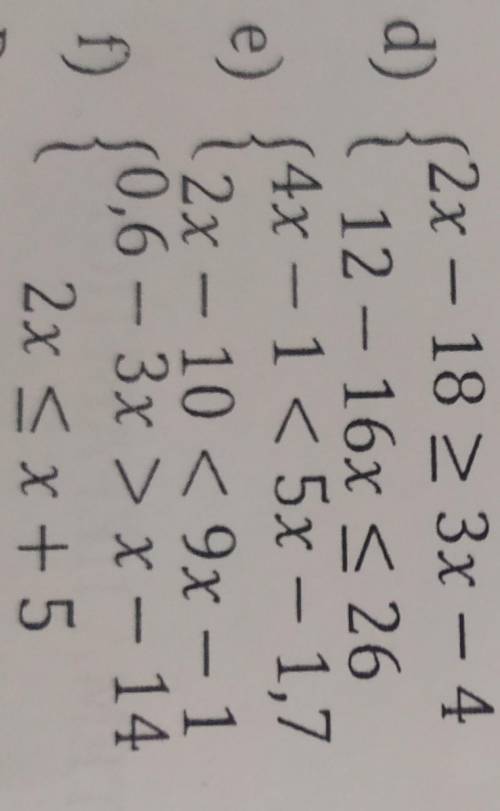 d) {2x − 18 ≥ 3x − 4
12 − 16x ≤ 26
e) {4x − 1 < 5x − 1,7
2x − 10 < 9x − 1
f) {0,6 − 3x > x − 14
2x ≤ x + 5